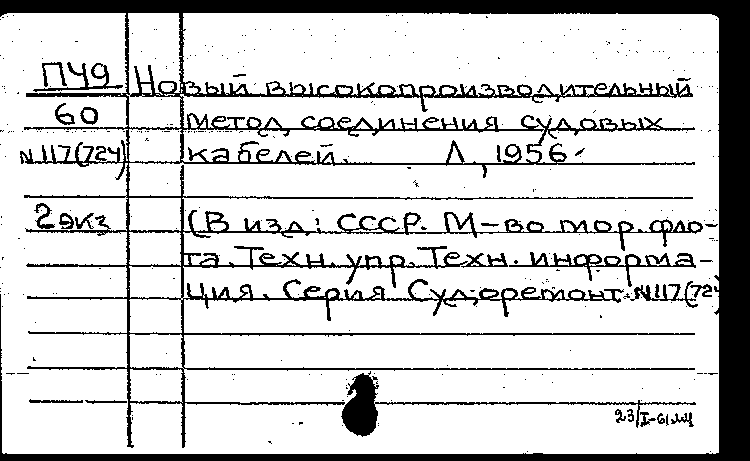 ПЧ9 Новый высокопроизводительный
60 метод соединения судовых
N117(724) кабелей. Л, 1956
2экз (В изд: СССР. М-во мор. фло-
та. Техн. упр. Техн. информа-
ция. Серия Судоремонт N117(724
23/I-61